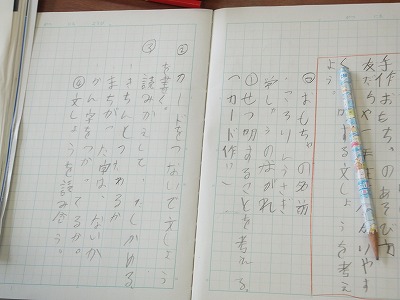 手作おもちゃのあそび方
友だちや一年生に分かりやす
くつたわる文しょうを考え
よう。
おもちゃの名前
ころりんうさぎ
学しゅうのながれ
①せつ明することを考える。
(カード作り)
②カードをつないで文しょう
を書く。
③読みかえしてたしかめる。
・きちんとつたわるか
・まちがった字はないか
・かん字をつかってるか。
④文しょうを読み合う。